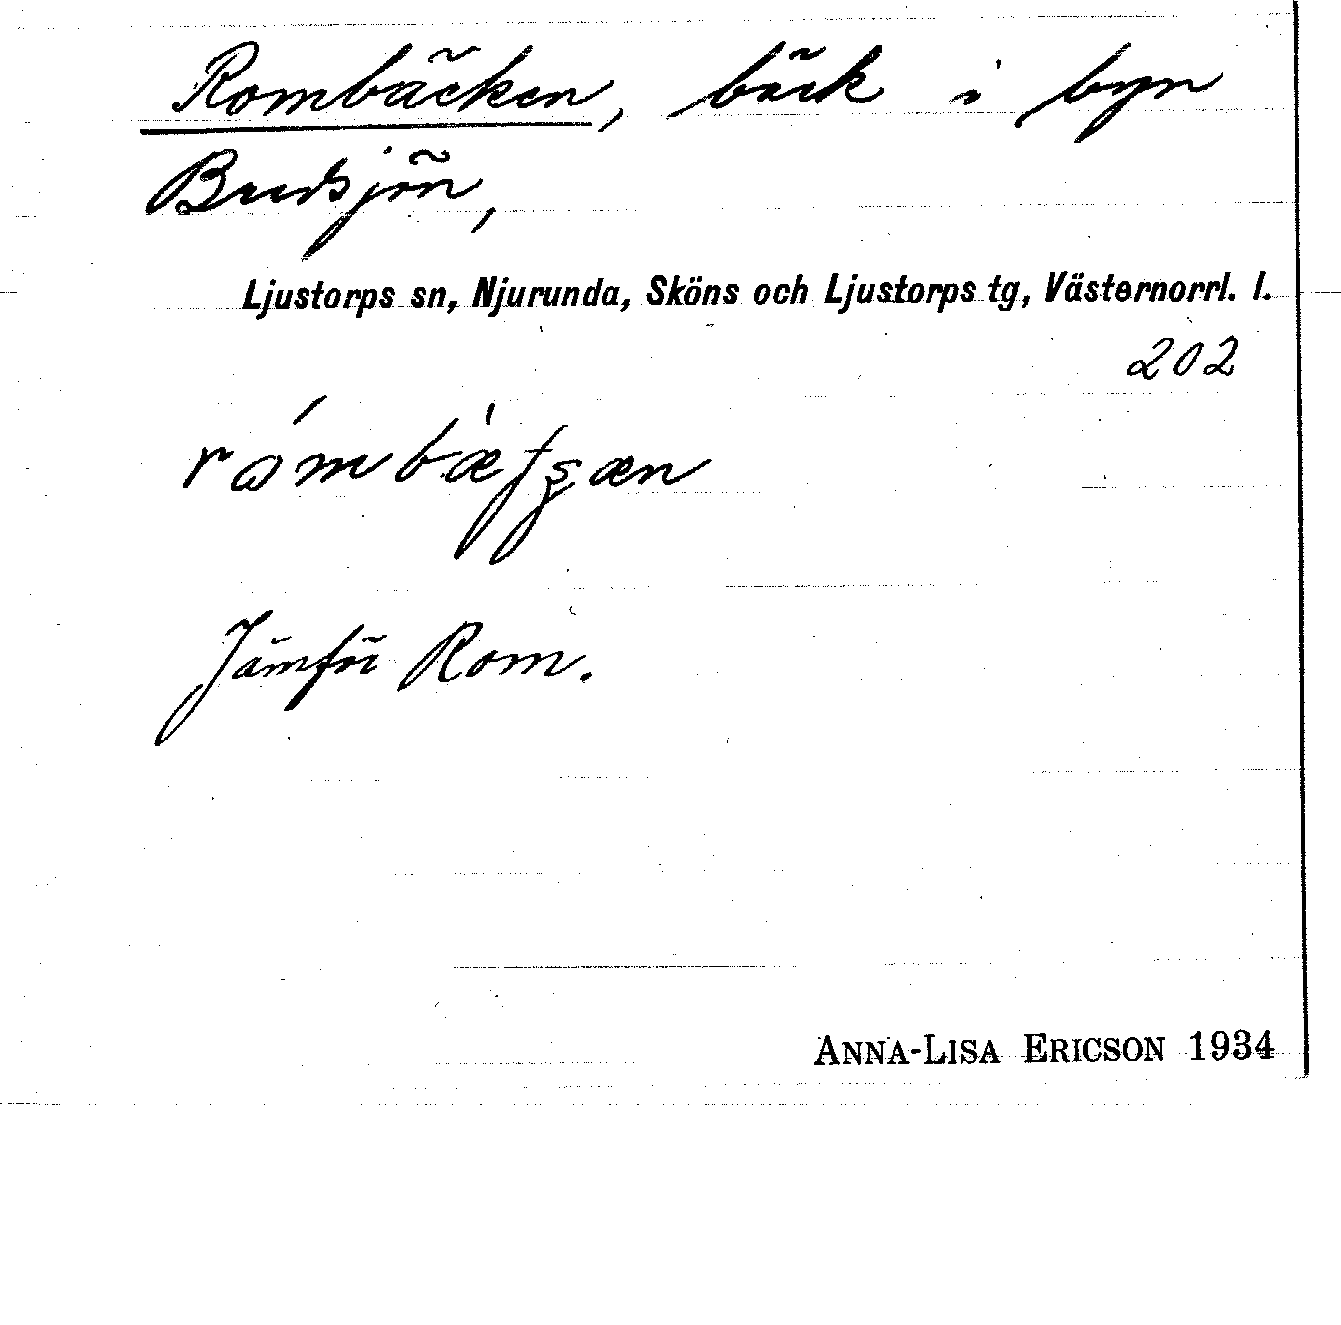 Rombäcken, bäck i byn
Bredsjön,
Ljustorps sn, Njurunda, Sköns och Ljustorps tg, Västernorrl. l.
202
Jämför Rom.
ANNA-LISA ERICSON 1934